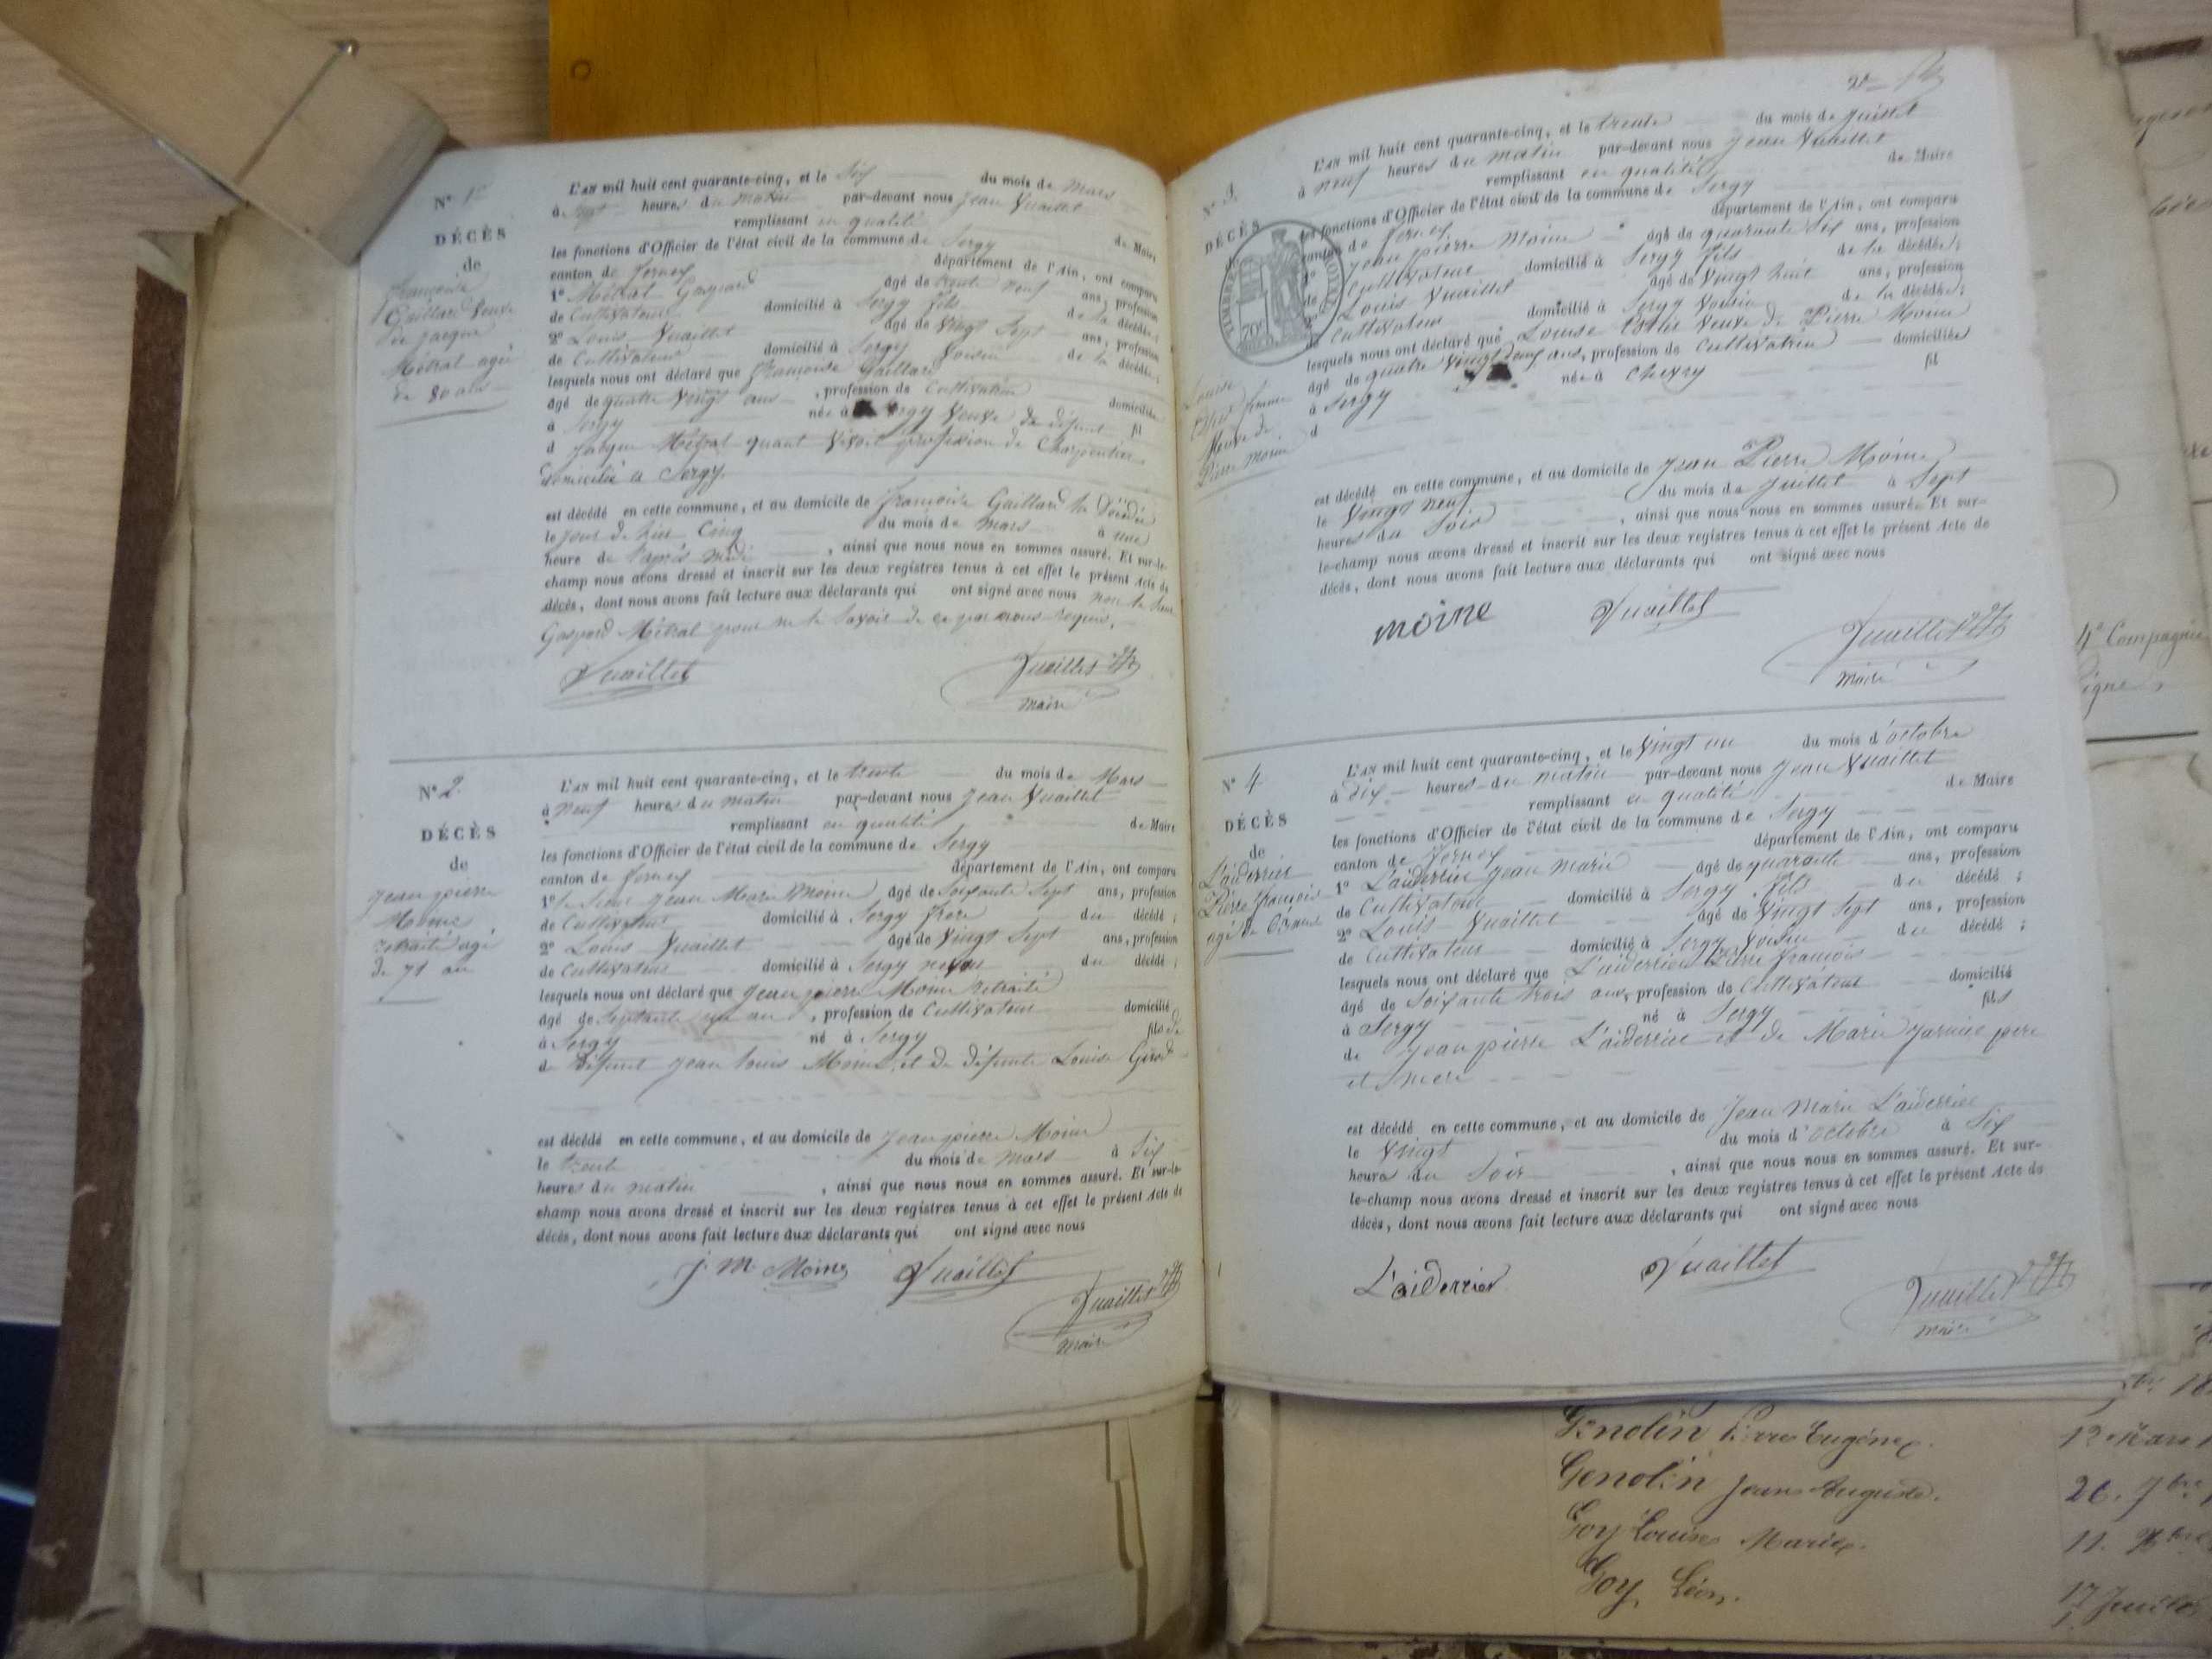 N° 1er
DÉCÈS
de
françoise
Gaillard Veuve
de jacque
Métral agée
de 80 ans
L'AN mil huit cent quarante-cinq, et le Six du mois de Mars
à Sept heures du matin par-devant nous Jean Vuaillet
remplissant en qualité de Maire
les fonctions d'Officier de l'état civil de la commune de Sergy
canton de ferney département de l'Ain, ont comparu
1° Métral Gaspard agé de trente neuf ans, profession
de Cultivateur domicilié à Sergy fils de la décédée;
2° Louis Vuaillet agé de Vingt Sept ans, profession
de Cultivateur domicilié à Sergy Voisin de la décédée;
lesquels nous ont déclaré que françoise Gaillard
âgé de quatre Vingt ans, profession de Cultivatrice domiciliée
à Sergy née à Sergy Veuve de défunt fil
d Jacque Métral quant Vivoit profession de Charpentier
domicilié a Sergy.
est décédé en cette commune, et au domicile de françoise Gaillard la Décédée
le jour de hier Cinq du mois de Mars à une
heure de l'après midi, ainsi que nous nous en sommes assuré. Et sur-le-
champ nous avons dressé et inscrit sur les deux registres tenus à cet effet le présent Acte de
décès, dont nous avons fait lecture aux déclarants qui ont signé avec nous non le dit
Gaspard Métral pour ne le Savoir de ce par nous requis.
Vuaillet
Vuaillet
maire
N° 2.
DÉCÈS
de
Jean pierre
Moine
retraité agé
de 71 an
L'AN mil huit cent quarante-cinq, et le trente du mois de Mars
à neuf heures du matin par-devant nous Jean Vuaillet
remplissant en qualité de Maire
les fonctions d'Officier de l'état civil de la commune de Sergy
canton de ferney département de l'Ain, ont comparu
1° le Sieur Jean Marie Moine agé de Soixante Sept ans, profession
de Cultivateur domicilié à Sergy frere du décédé;
2° Louis Vuaillet agé de Vingt Sept ans, profession
de Cultivateur domicilié à Sergy du décédé;
lesquels nous ont déclaré que Jean pierre Moine retraité
âgé de Septante un an, profession de Cultivateur domicilié
à Sergy né à Sergy fils de
d défunt Jean louis Moine, et de défunte Louise Girod
est décédé en cette commune, et au domicile de Jean pierre Moine
le trente du mois de mars à Six
heures du matin, ainsi que nous nous en sommes assuré. Et sur-le-
champ nous avons dressé et inscrit sur les deux registres tenus à cet effet le présent Acte de
décès, dont nous avons fait lecture aux déclarants qui ont signé avec nous
j. m Moine Vuaillet
Vuaillet
maire
N° 3.
DÉCÈS
de
Louise
femme
Veuve de
Pierre Moine
TIMBRE ROYAL
70c
L'AN mil huit cent quarante-cinq, et le trente du mois de Juillet
à neuf heures du matin par-devant nous Jean Vuaillet
remplissant en qualité de Maire
les fonctions d'Officier de l'état civil de la commune de Sergy
canton de ferney département de l'Ain, ont comparu
1° Jean pierre Moine agé de quarante Six ans, profession
de Cultivateur domicilié à Sergy fils de la décédée;
2° Louis Vuaillet agé de Vingt huit ans, profession
de Cultivateur domicilié à Sergy Voisin de la décédée;
lesquels nous ont déclaré que Louise Veuve de Pierre Moine
âgé de quatre Vingt ans, profession de Cultivatrice domiciliée
à Sergy née à Chevry fil
d
est décédé en cette commune, et au domicile de Jean Pierre Moine
le Vingt neuf du mois de Juillet à Sept
heures du Soir, ainsi que nous nous en sommes assuré. Et sur-
le-champ nous avons dressé et inscrit sur les deux registres tenus à cet effet le présent Acte de
décès, dont nous avons fait lecture aux déclarants qui ont signé avec nous
moine Vuaillet
Vuaillet
maire
N° 4
DÉCÈS
de
L'aiderrier
Pierre françois
agé de 63 ans
L'AN mil huit cent quarante-cinq, et le Vingt un du mois d'octobre
à dix heures du matin par-devant nous Jean Vuaillet
remplissant en qualité de Maire
les fonctions d'Officier de l'état civil de la commune de Sergy
canton de ferney département de l'Ain, ont comparu
1° L'aiderrier Jean Marie agé de quarante ans, profession
de Cultivateur domicilié à Sergy fils du décédé;
2° Louis Vuaillet agé de Vingt Sept ans, profession
de Cultivateur domicilié à Sergy Voisin du décédé;
lesquels nous ont déclaré que L'aiderrier Pierre françois
âgé de Soixante trois ans, profession de Cultivateur domicilié
à Sergy né à Sergy fils
de Jean pierre L'aiderrier et de Marie pere
et mere
est décédé en cette commune, et au domicile de Jean Marie L'aiderrier
le Vingt du mois d'octobre à Six
heures du Soir, ainsi que nous nous en sommes assuré. Et sur-
le-champ nous avons dressé et inscrit sur les deux registres tenus à cet effet le présent Acte de
décès, dont nous avons fait lecture aux déclarants qui ont signé avec nous
L'aiderrier Vuaillet
Vuaillet
maire
4e Compagnie
Genolin Pierre Eugène.
Genolin Jean Auguste. 26. 7bre
Goy Louise Marie. 11.
Goy Léon. 17 Juillet